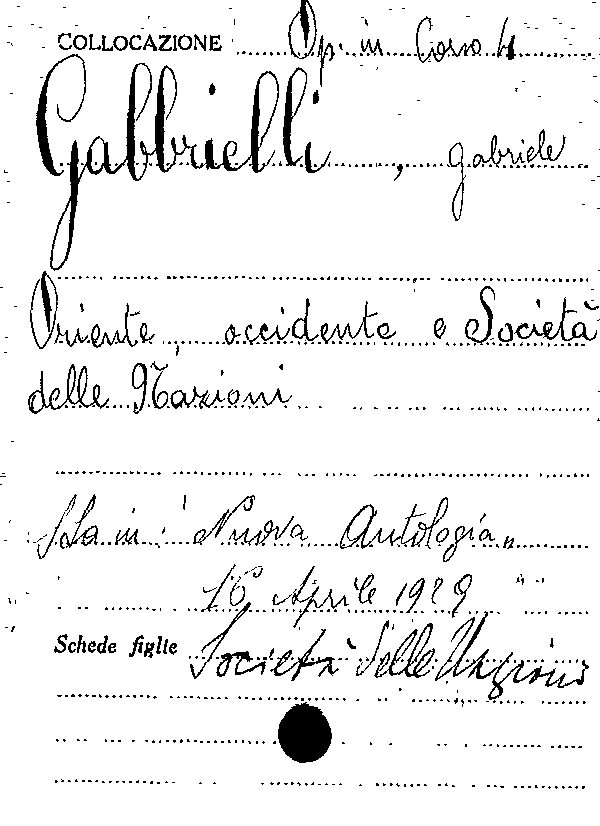 COLLOCAZIONE Op. in Corso 4
Gabbrielli, Gabriele
Oriente, occidente e Società
delle Nazioni
Sta in: "Nuova Antologia"
16 Aprile 1929
Schede figlie Società delle Nazioni